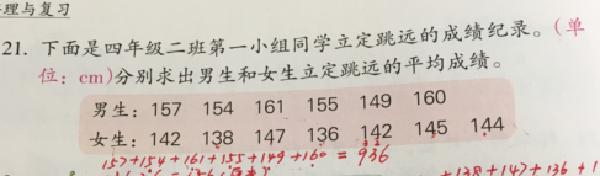 理与复习
21. 下面是四年级二班第一小组同学立定跳远的成绩纪录。(单
位：cm)分别求出男生和女生立定跳远的平均成绩。
男生：157 154 161 155 149 160
女生：142 138 147 136 142 145 144
157+154+161+155+149+160=936
+138+147+136+1